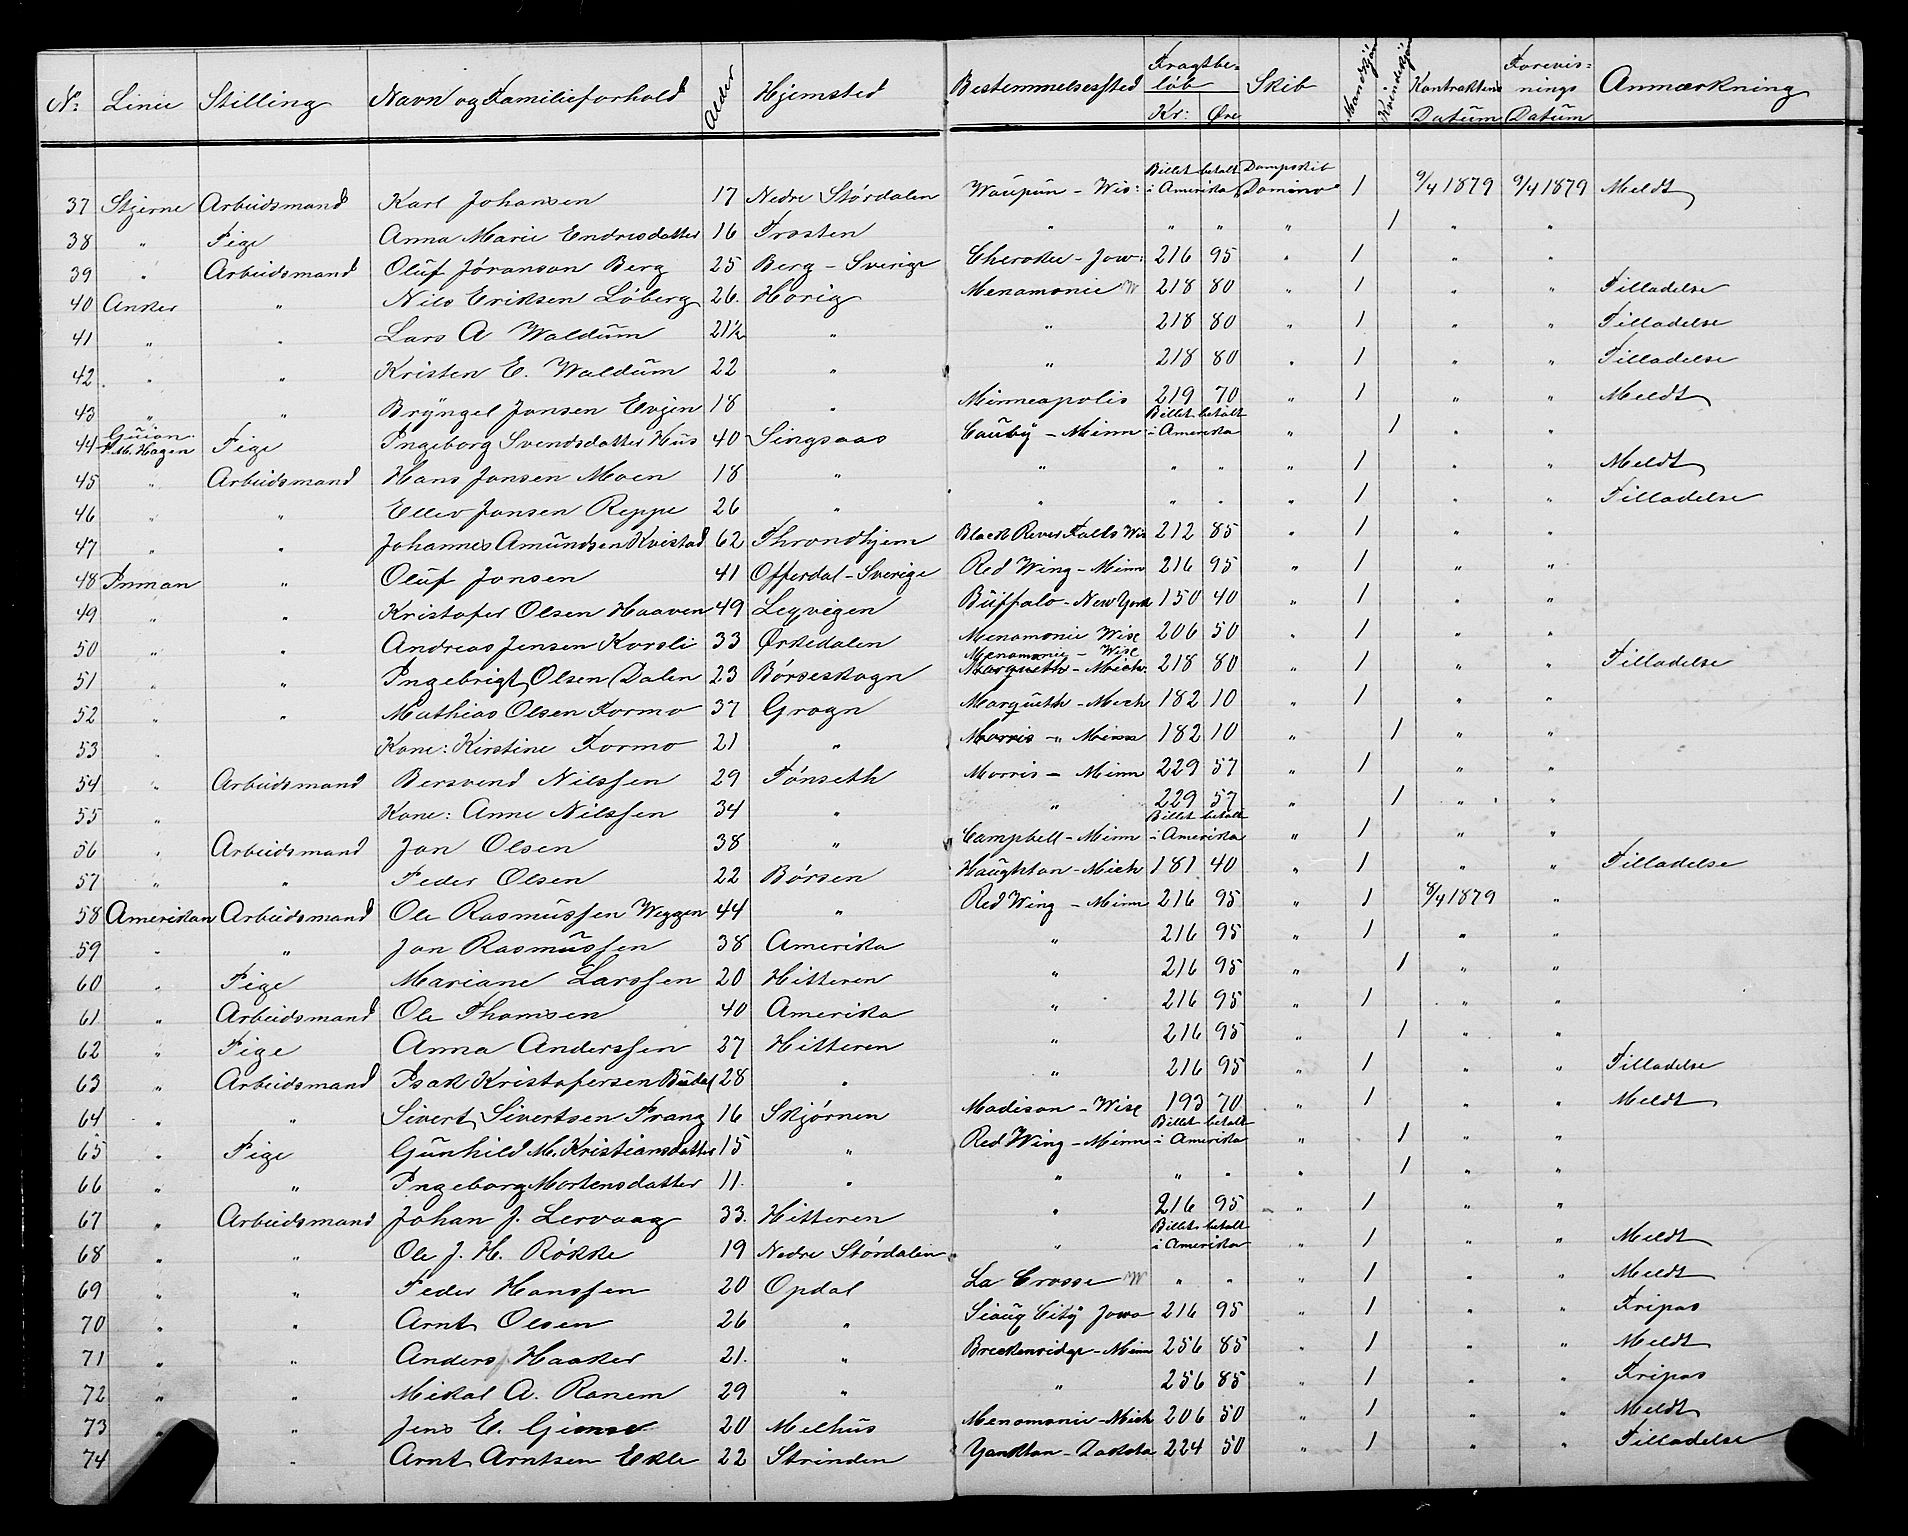 No. Linie Stilling Navn og Familieforhold Alder Hjemsted Bestemmelsessted Fragtbeløb Kr: Øre Skib Mandkjøn Kvindekjøn Kontraktens Datum Forevisnings Datum Anmærkning
37 Stjerne Arbeidsmand Karl Johansen 17 Nedre Størdalen Waupun - Wis: Billet betalt i Amerika Dampskib Domino 1 9/4 1879 9/4 1879 Meldt
38 " Pige Anna Marie Endresdatter 16 Frosten " " " " 1 " "
39 " Arbeidsmand Oluf Jöranson Berg 25 Berg - Sverige Cherokee - Jow: 216 95 " 1 " "
40 Anker " Nils Eriksen Löberg 26. Horig Menamonie W 218 80 " 1 " " Tilladelse
41 " " Lars A Waldum 21½ " " 218 80 " 1 " " Tilladelse
42 " " Kristen E. Waldum 22 " " 218 80 " 1 " " Tilladelse
43 " " Bryngel Jonsen Evjen 18 " Minneapolis 219 70 " 1 " " Meldt
44 Guion P. M. Hagen Pige Ingeborg Svendsdatter Hus 40 Singsaas Cauby - Minn Billet betalt i Amerika " 1 " "
45 " Arbeidsmand Hans Jonsen Moen 18 " " " " " 1 " " Meldt
46 " " Ellev Jonsen Reppe 26 " " " " " 1 " " Tilladelse
47 " " Johannes Amundsen Kvistad 62 Throndhjem Black River Falls Wis 212 85 " 1 " "
48 Inman " Oluf Jonsen 41 Offerdal - Sverige Red Wing - Minn 216 95 " 1 " "
49 " " Kristofer Olsen Haaven 49 Lexvigen Buffalo - New York 150 40 " 1 " "
50 " " Andreas Jensen Korsli 33 Ørkedalen Menamonie Wisc 206 50 " 1 " "
51 " " Ingebrigt Olsen Dalen 23 Børseskogn Menamonie - Wisc Marquette - Mich. 218 80 " 1 " " Tilladelse
52 " " Mathias Olsen Formo 37 Grogn Marquette - Mich 182 10 " 1 " "
53 " Kone: Kirstine Formo 21 " Morris - " Minn 182 10 " 1 " "
54 " Arbeidsmand Bersvend Nilssen 29 Tønseth Morris - Minn 229 57 " 1 " "
55 " Kone: Anne Nilssen 34 " " 229 57 " 1 " "
56 " Arbeidsmand Jon Olsen 38 " Campbell - Minn Billet betalt i Amerika " 1 " "
57 " " Peder Olsen 22 Børsen Haughton - Mich 181 40 " 1 " " Tilladelse
58 Amerikan Arbeidsmand Ole Rasmussen Weggen 44 " Red Wing - Minn 216 95 " 1 8/4 1879 "
59 " " Jon Rasmussen 38 Amerika " 216 95 " 1 " "
60 " Pige Mariane Larssen 20 Hitteren " 216 95 " 1 " "
61 " Arbeidsmand Ole Thomsen 40 Amerika " 216 95 " 1 " "
62 " Pige Anna Anderssen 27 Hitteren " 216 95 " 1 " "
63 " Arbeidsmand Isak Kristofersen Budal 28 " " 216 95 " 1 " " Tilladelse
64 " " Sivert Sivertsen Frang 16 Skjørnen Madison - Wisc 193 70 " 1 " " Meldt
65 " Pige Gunhild M. Kristiansdatter 15 " Red Wing - Minn Billet betalt i Amerika " 1 " "
66 " " Ingeborg Mortensdatter 11. " " " " " 1 " "
67 " Arbeidsmand Johan J. Lervaag 33. Hitteren " 216 95 " 1 " "
68 " " Ole J. H. Røkke 19 Nedre Størdalen " Billet betalt i Amerika " 1 " " Meldt
69 " " Peder Hanssen 20 Opdal La Crosse W " " " 1 " " Meldt
70 " " Arnt Olsen 26 " Sioug City Jowa 216 95 " 1 " " Fripas
71 " " Anders Haaker 21. " Breckenridge - Minn 256 85 " 1 " " Meldt
72 " " Mikal A. Ranem 29 " " 256 85 " 1 " " Fripas
73 " " Jens E. Gimse 20 Melhus Menamonie - Mich 206 50 " 1 " " Meldt
74 " Arnt Arntsen Ekle 22 Strinden Yankton - Dakota 224 50 " 1 " " Tilladelse